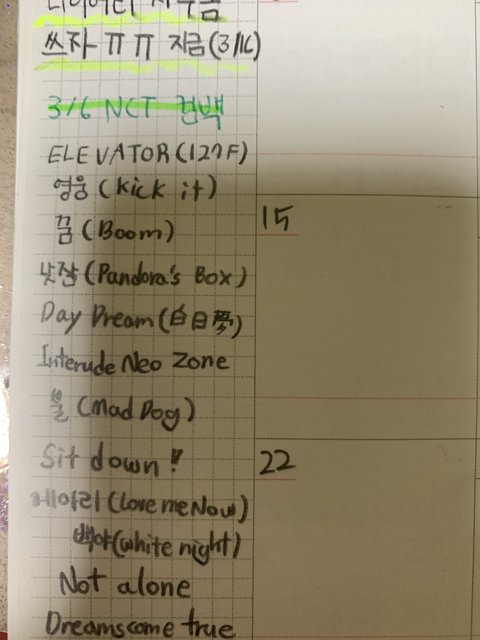 쓰자 ㅠㅠ 지금(3/16)
3/6 NCT 컴백
ELEVATOR(127F)
영웅(kick it)
15
꿈(Boom)
낮잠(Pandora's Box)
Day Dream(白日夢)
Interude Neo Zone
뿔(Mad Dog)
Sit down!
22
메아리(Love me Now)
백야(white night)
Not alone
Dreams come true